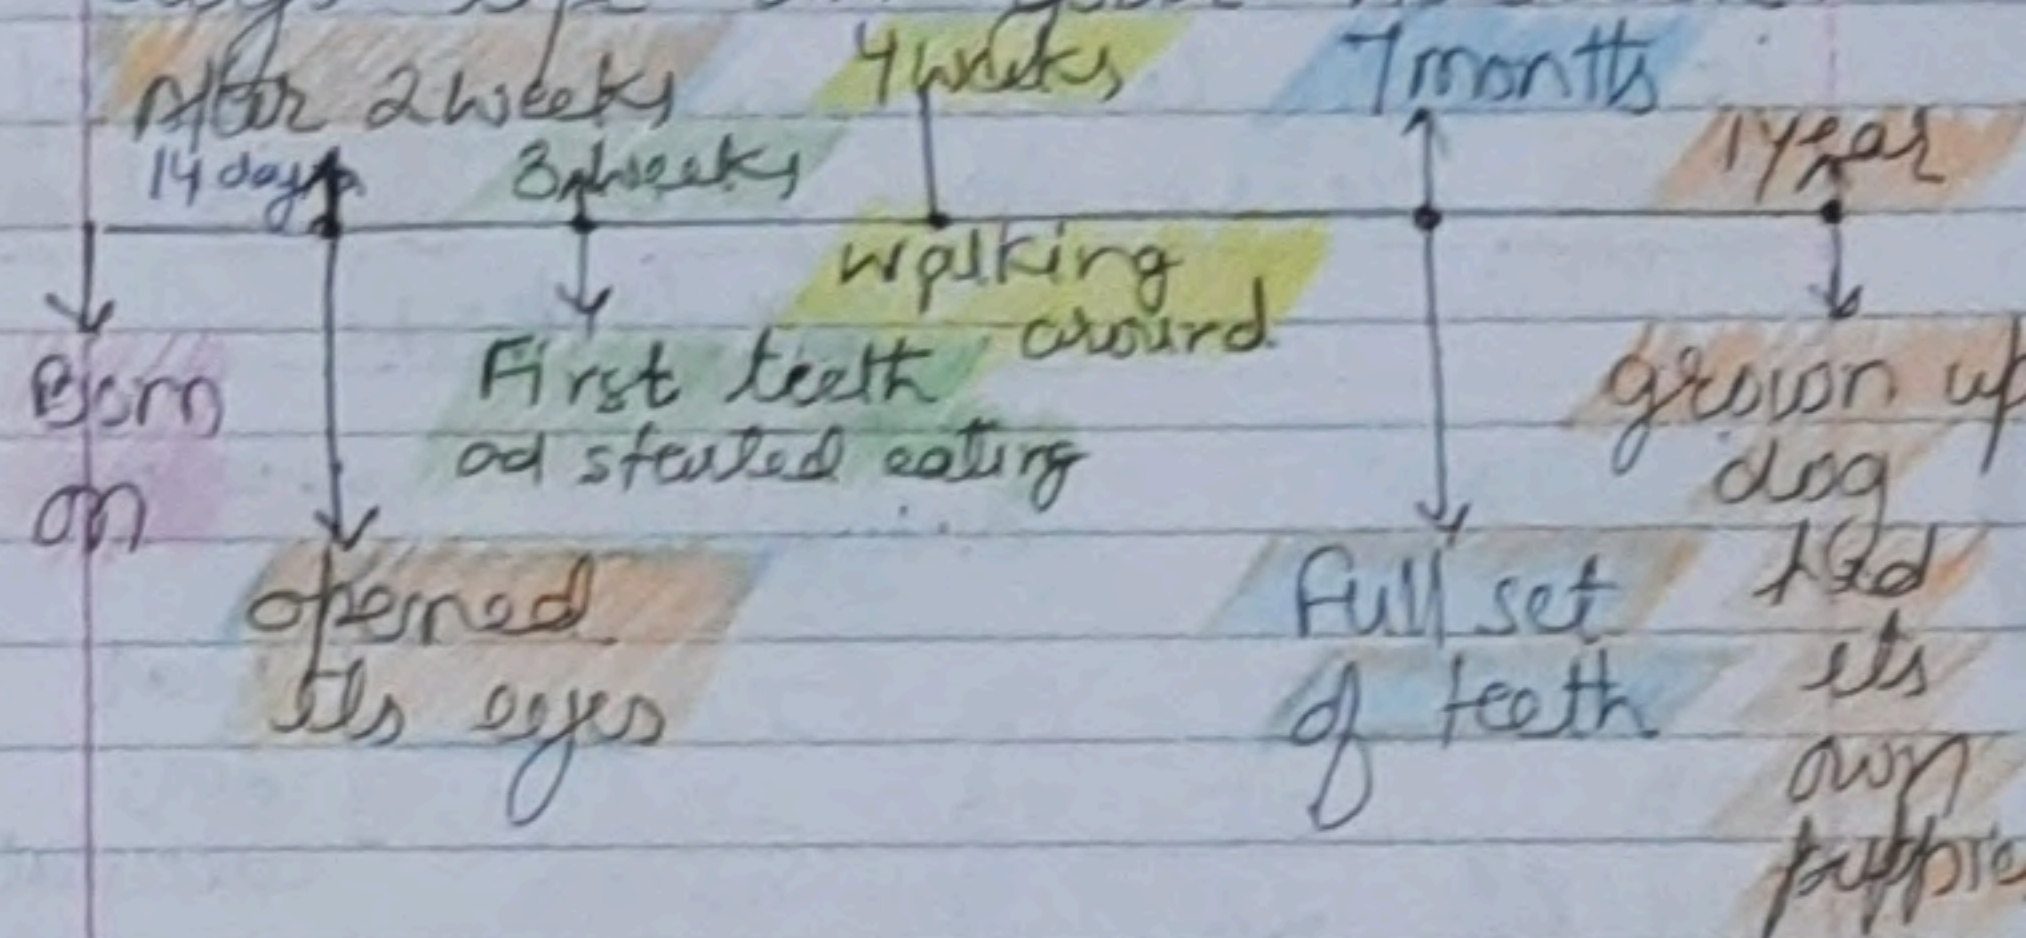 After 2 weeks
14 days
3 weeks
4 weeks
7 months
1 year
Born
on
opened
its eyes
First teeth
ad started eating
walking
around
Full set
of teeth
grown up
dog
had
its
own